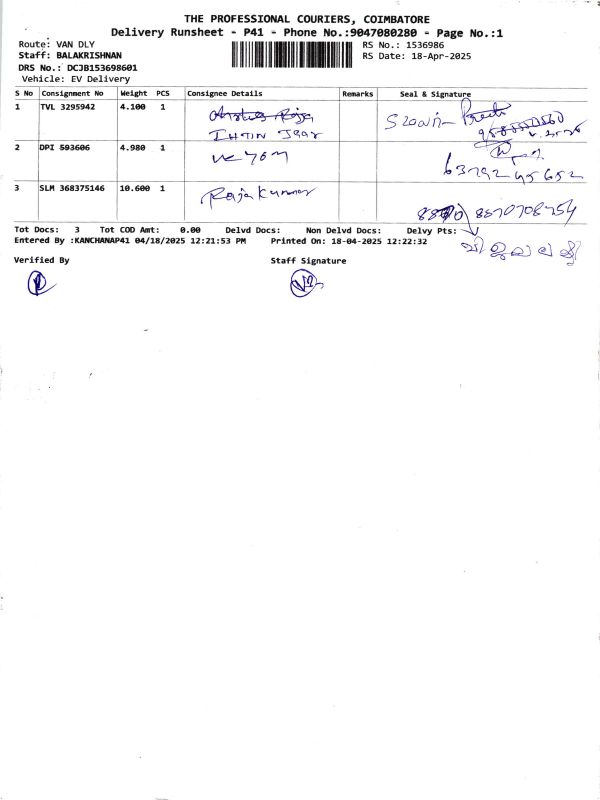 THE PROFESSIONAL COURIERS, COIMBATORE
Delivery Runsheet - P41 - Phone No.:9047080280 - Page No.:1
Route: VAN DLY RS No.: 1536986
Staff: BALAKRISHNAN RS Date: 18-Apr-2025
DRS No.: DCJB153698601
Vehicle: EV Delivery
S No Consignment No Weight PCS Consignee Details Remarks Seal & Signature
1 TVL 3295942 4.100 1
2 DPI 593606 4.980 1
63792 45652
3 SLM 368375146 10.600 1 Rajakumar
8870708754
Tot Docs: 3 Tot COD Amt: 0.00 Delvd Docs: Non Delvd Docs: Delvy Pts:
Entered By :KANCHANAP41 04/18/2025 12:21:53 PM Printed On: 18-04-2025 12:22:32
Verified By Staff Signature